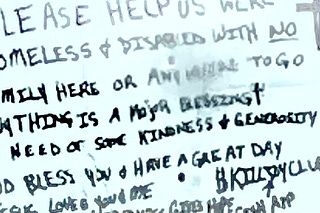 LEASE HELP US WERE
OMELESS & DISABLED WITH NO
MILY HERE OR ANYWHERE TO GO
YTHING IS A MAJOR BLESSING
NEED OF SOME KINDNESS & GENEROSITY
D BLESS YOU & HAVE A GREAT DAY
LOVES YOU & ME
GIVES HOPE
CASH APP